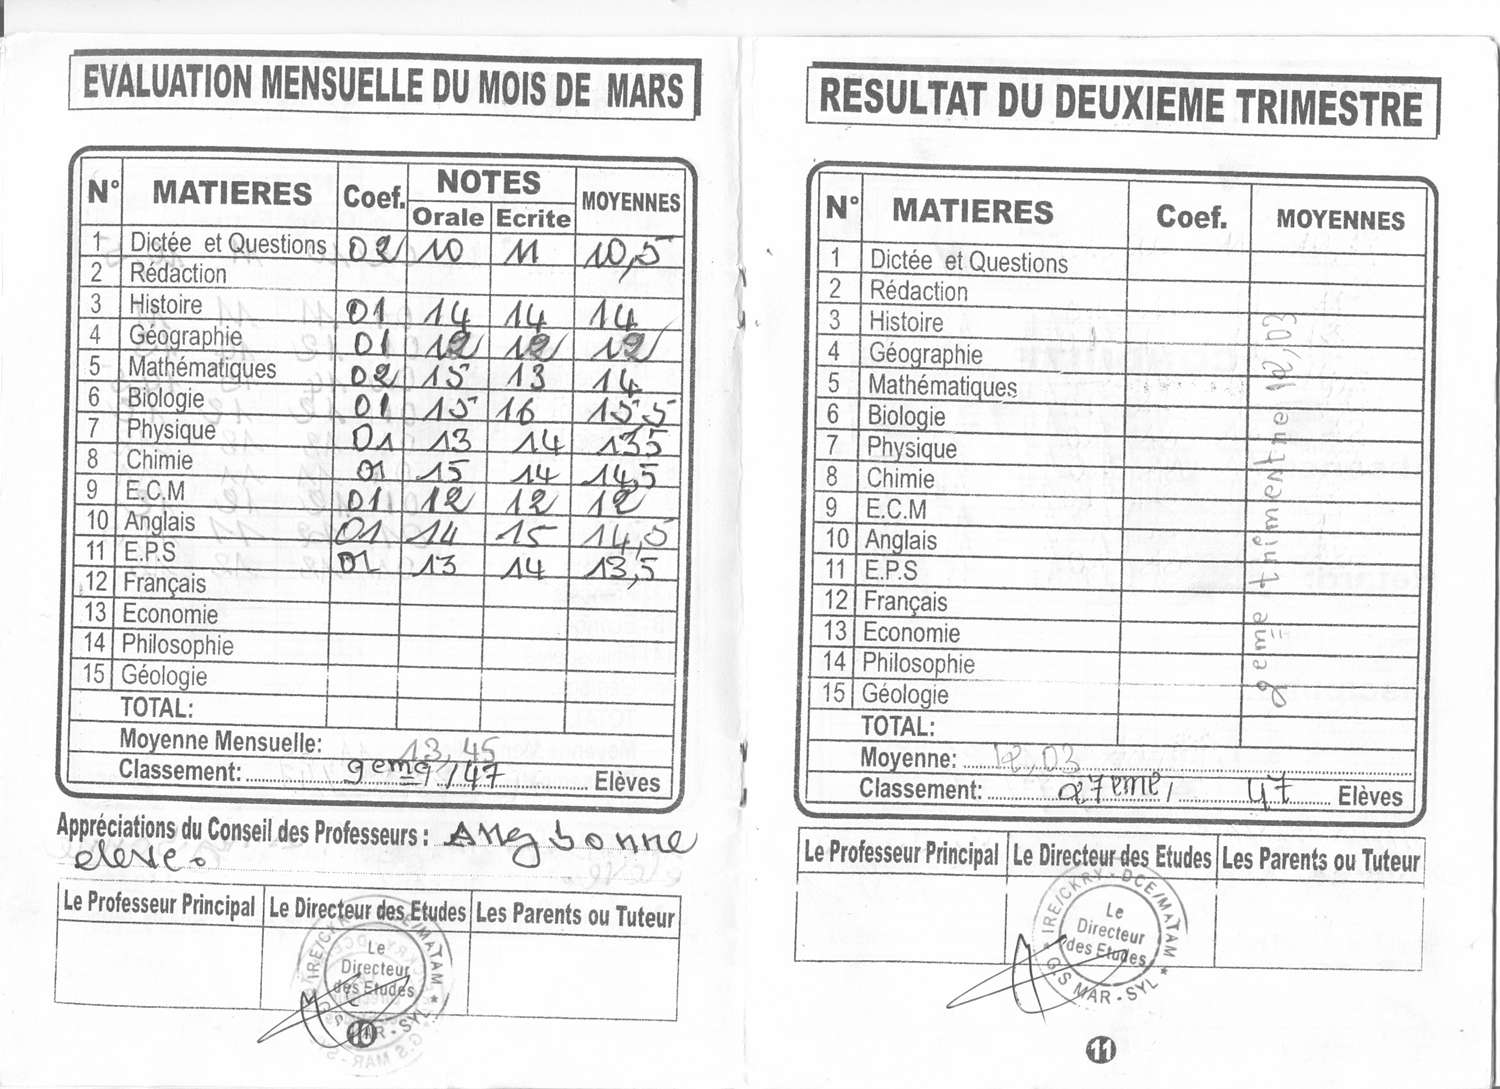 EVALUATION MENSUELLE DU MOIS DE MARS
N° MATIERES Coef. NOTES MOYENNES
Orale Ecrite
1 Dictée et Questions 02 10 11 10,5
2 Rédaction
3 Histoire 01 14 14 14
4 Géographie 01 12 12 12
5 Mathématiques 02 15 13 14
6 Biologie 01 15 16 15,5
7 Physique 01 13 14 13,5
8 Chimie 01 15 14 14,5
9 E.C.M 01 12 12 12
10 Anglais 01 14 15 14,5
11 E.P.S 01 13 14 13,5
12 Français
13 Economie
14 Philosophie
15 Géologie
TOTAL:
Moyenne Mensuelle: 13,45
Classement: 9eme/47 Elèves
Appréciations du Conseil des Professeurs : bonne
eleve.
Le Professeur Principal Le Directeur des Etudes Les Parents ou Tuteur
Le
Directeur
des Etudes
10
RESULTAT DU DEUXIEME TRIMESTRE
N° MATIERES Coef. MOYENNES
1 Dictée et Questions
2 Rédaction
3 Histoire
4 Géographie
5 Mathématiques
6 Biologie
7 Physique
8 Chimie
9 E.C.M
10 Anglais
11 E.P.S
12 Français
13 Economie
14 Philosophie
15 Géologie
12,03
TOTAL:
Moyenne: 12,03
Classement: 27eme, 47 Elèves
Le Professeur Principal Le Directeur des Etudes Les Parents ou Tuteur
IRE/CKRY - DCE/MATAM
Le
Directeur
des Etudes
* G.S MAR - SYL *
11